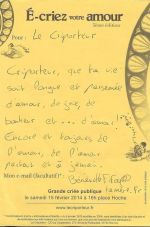 É-criez votre amour
5ème édition
Pour : Le Criporteur
Criporteur, que ta vie
soit longue et parsemée
d'amour, de joie, de
bonheur et ... d'amour!
Encore et toujours de
l'amour, de l'amour
partout et à jamais...
Mon e-mail (facultatif) :
Grande criée publique
le samedi 15 février 2014 à 16h place Hoche
www.lecriporteur.fr